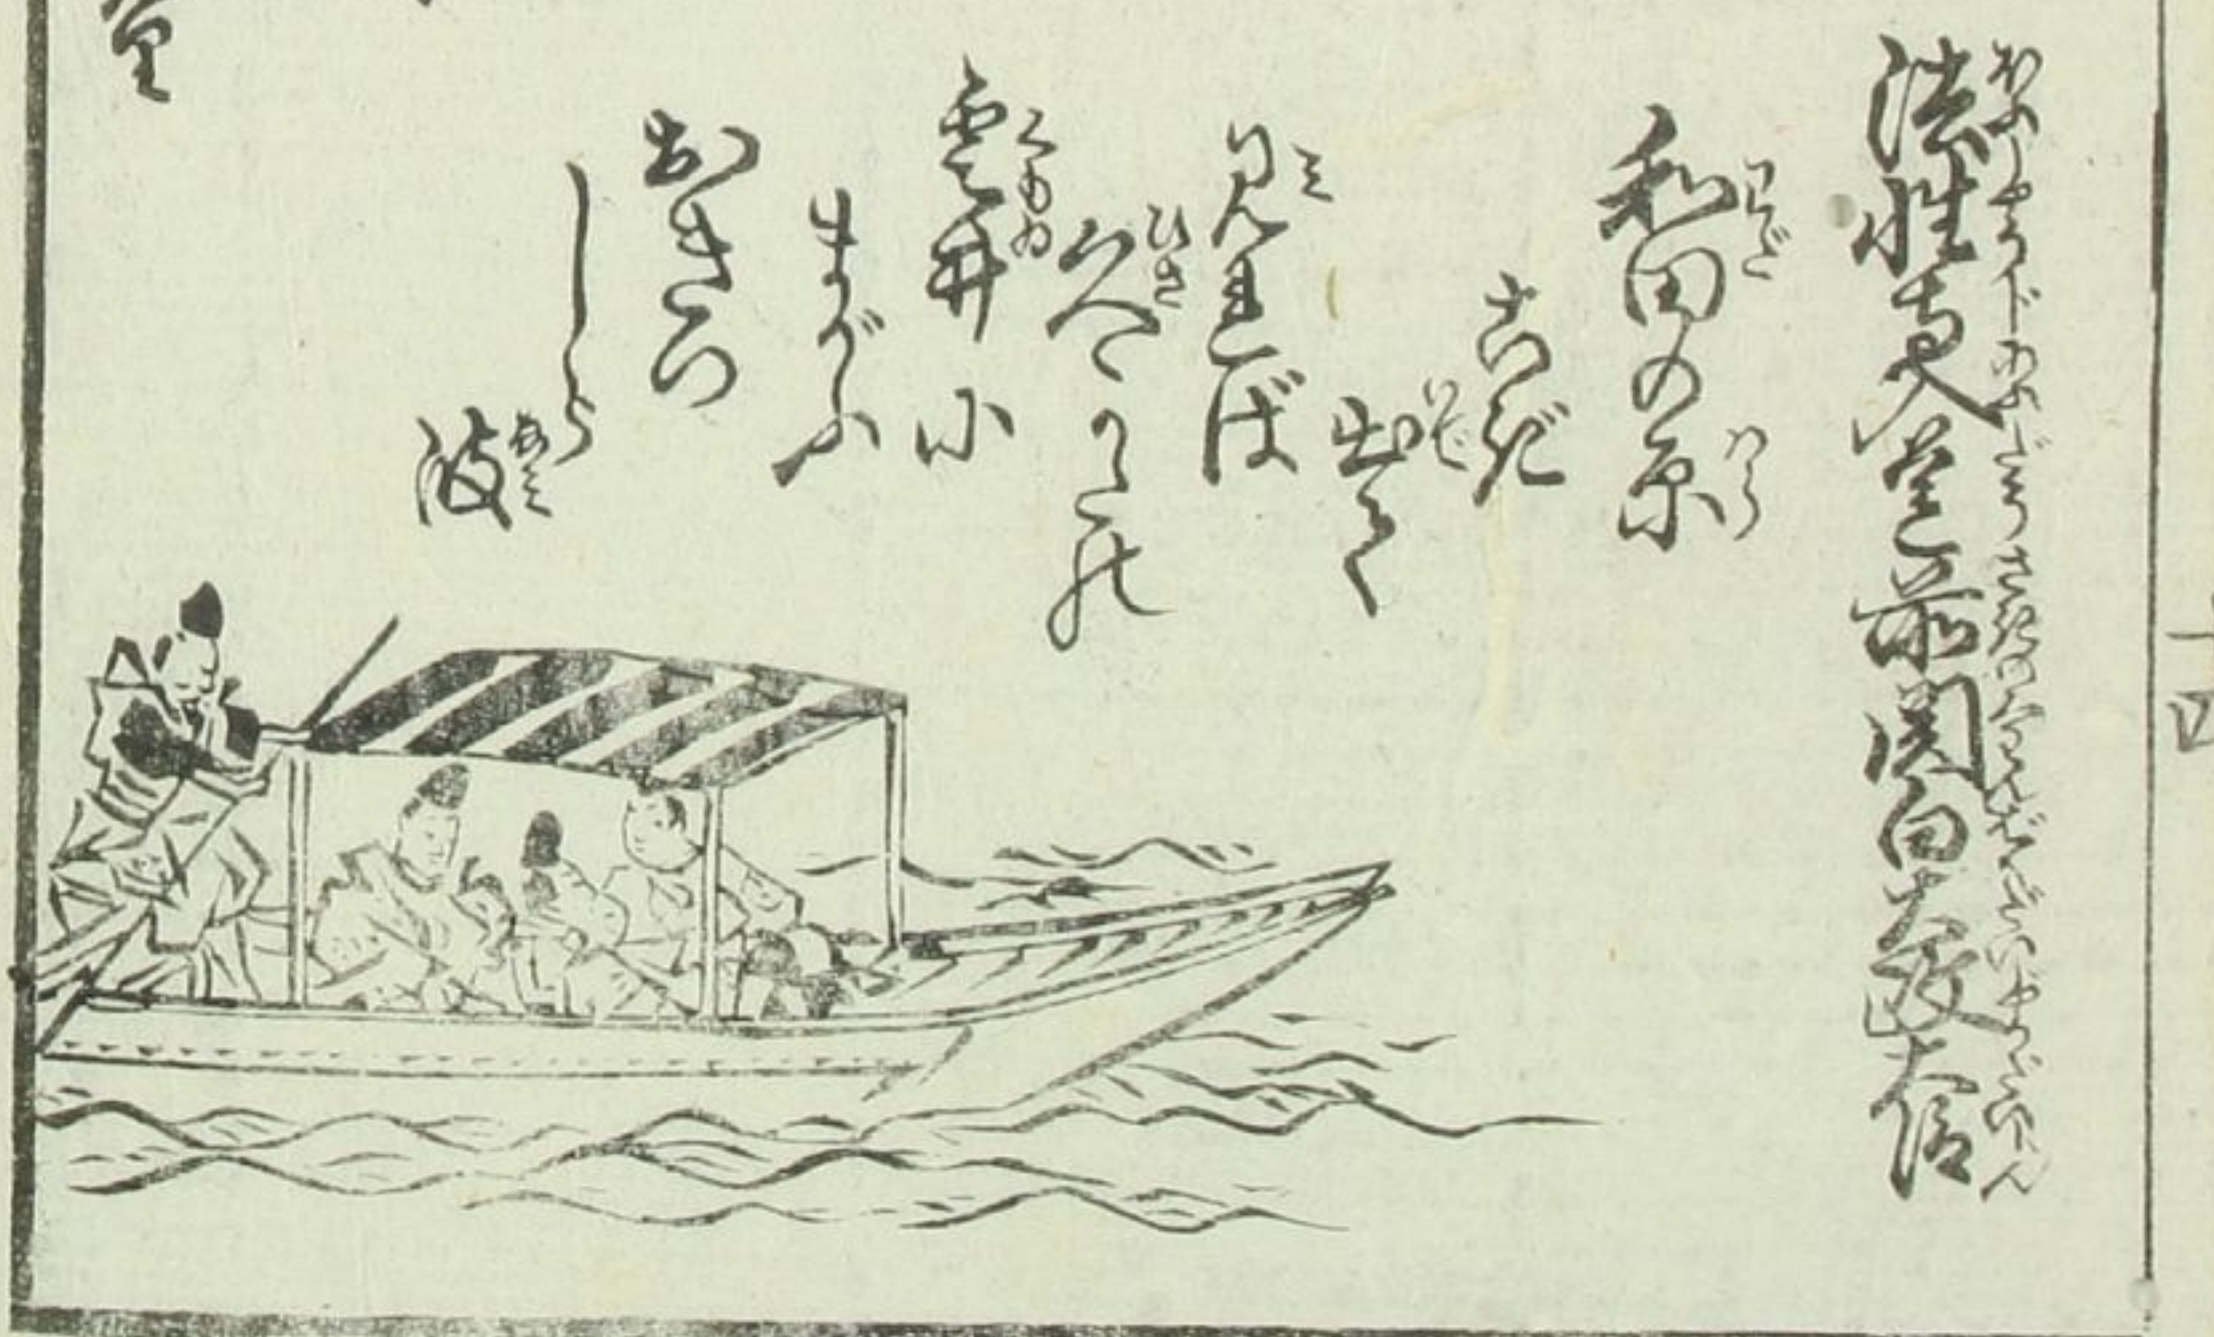 法性寺入道前関白太政大臣
和田の原
こぎ
出て
見れば
久かたの
雲井に
まがふ
おきつ
しら
波